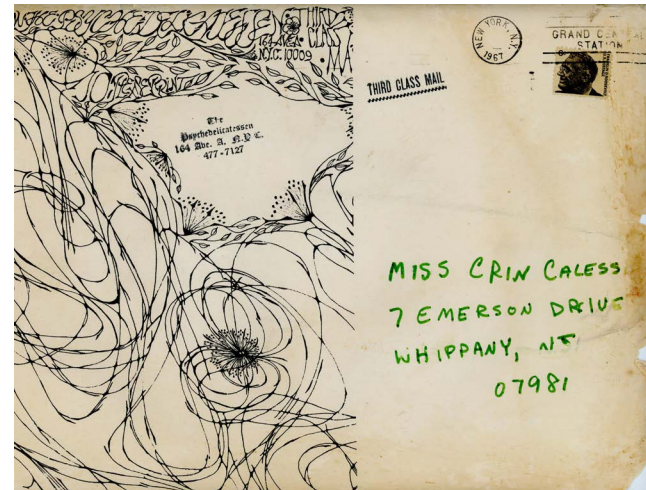 PSYCHEDELICATESSEN
164 AVE. A
N.Y.C. 10009
THIRD
CLASS
MAIL
The
Psychedelicatessen
164 Ave. A, N.Y.C.
477-7127
THIRD CLASS MAIL
NEW YORK, N.Y.
1967
GRAND CENTRAL
STATION
MISS CRIN CALESS
7 EMERSON DRIVE
WHIPPANY, NJ
07981